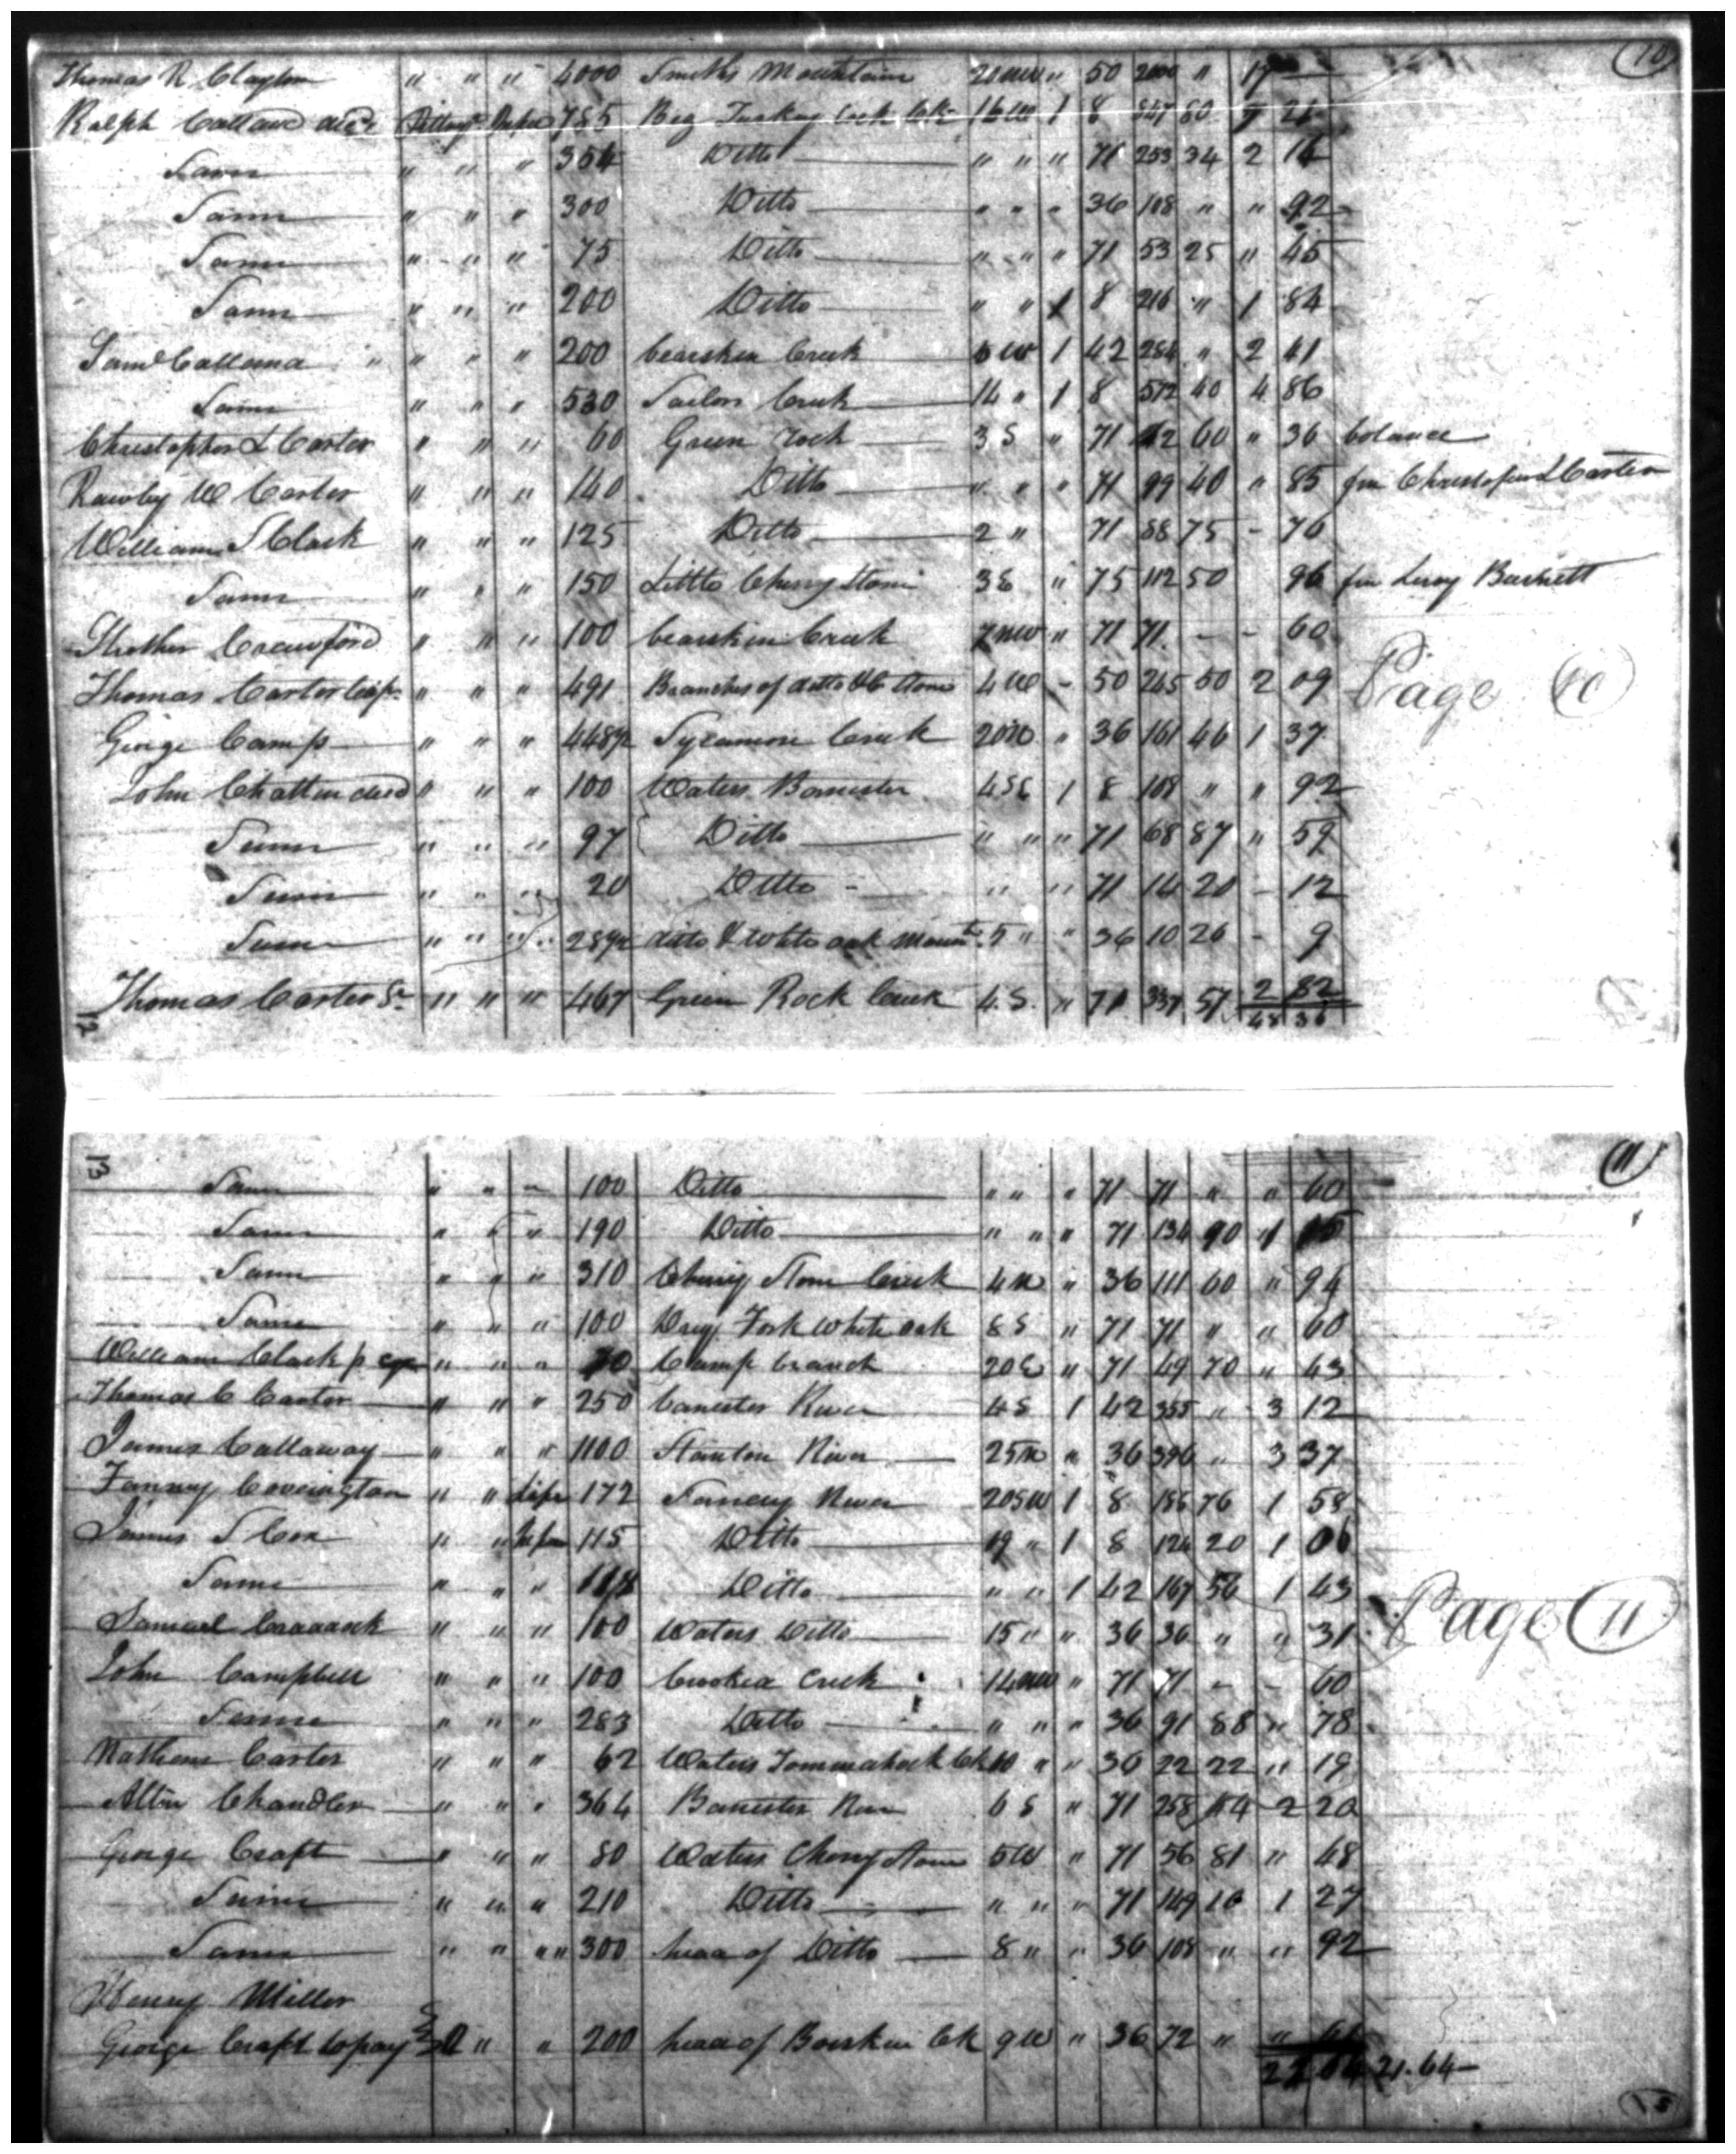 10
Thomas R Clayton " " " 4000 Smiths Mountain 20 NW " 50 2000 " 17 —
Ralph Calland decd Pittsyl 785 Big Turkey Cock Ck 16 W 1 8 847 80 7 21
Same " " " 354 Ditto " " " 71 253 34 2 16
Same " " " 300 Ditto " " " 36 108 " " 92
Same " " " 75 Ditto " " " 71 53 25 " 45
Same " " " 200 Ditto " " 1 8 216 " 1 84
Saml Calland " " " 200 bearskin Creek 6 W 1 42 284 " 2 41
Same " " " 530 Sailors Creek 14 " 1 8 572 40 4 86
Christopher L Carter " " " 60 Green Rock 3 S " 71 42 60 " 36 balance
Rawley W Carter " " " 140 Ditto " " " 71 99 40 " 85 fm Christopher L Carter
William S Clark " " " 125 Ditto 2 " 71 88 75 - 76
Same " " " 150 Little Cherry Stone 3 E " 75 112 50 96 fm Leroy Burnett
Strother Crawford " " " 100 bearskin Creek 7 NW " 71 71 - - 60
Thomas Carter Cap " " " 491 Branches of ditto & C Stone 4 W - 50 245 50 2 09 Page 10
George Camp " " " 448½ Sycamore Creek 20 W " 36 161 46 1 37
John Chattin decd " " " 100 Waters Banister 4 SE 1 8 108 " " 92
Same " " " 97 Ditto " " " 71 68 87 " 59
Same " " " 20 Ditto " " 71 14 20 - 12
Same " " " 28½ ditto & White oak Mount 5 " " 36 10 26 - 9
Thomas Carter Sr " " " 467 Green Rock Creek 4 S " 71 331 57 2 82
12 48 36
13 11
Same " " " 100 Ditto " " " 71 71 " " 60
Same " " " 190 Ditto " " " 71 134 90 1 15
Same " " " 310 Cherry Stone Creek 4 N " 36 111 60 " 94
Same " " " 100 Dry Fork White oak 8 S " 71 71 " " 60
William Clark " " " 70 Camp branch 20 E " 71 49 70 " 43
Thomas C Carter " " " 250 banester River 4 S 1 42 355 " 3 12
James Callaway " " " 1100 Stanton River 25 N " 36 396 " 3 37
Fanny Covington " " Life 172 Sandy River 20 SW 1 8 185 76 1 58
James S Cox " " 115 Ditto 19 " 1 8 124 20 1 06
Same " " " 118 Ditto " " 1 42 167 56 1 43
Samuel Craddock " " " 100 Waters Ditto 15 " " 36 36 " " 31 Page 11
John Campbell " " " 100 Crooked Creek 14 NW " 71 71 - - 60
Same " " " 283 Ditto " " " 36 91 88 " 78
Nathan Carter " " " 62 Waters Tommahock Ck 10 " " 36 22 22 " 19
Allin Chandler " " " 364 Banester River 6 S " 71 258 44 2 20
George Craft " " " 80 Waters Cherry Stone 5 W " 71 56 81 " 48
Same " " " 210 Ditto " " " 71 149 10 1 27
Same " " " 300 head of Ditto 8 " " 36 108 " " 92
Henry Miller
George Craft to pay " " 200 head of Bearskin Ck 9 W " 36 72 " " 61
21.64
13